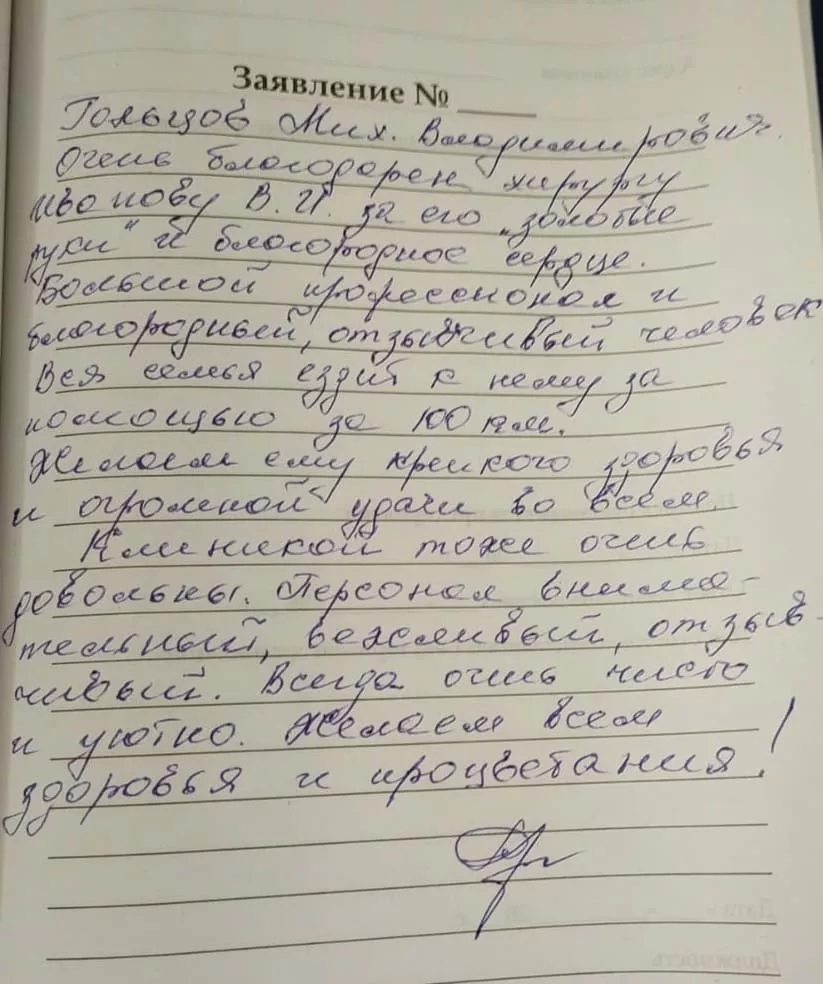 Заявление № ____
Гольцов Мих. Владимирович.
Очень благодарен хирургу
Иванову В.И. за его „золотые
руки" и благородное сердце.
Большой профессионал и
благородный, отзывчивый человек
Вся семья ездит к нему за
помощью за 100 км.
Желаем ему крепкого здоровья
и огромной удачи во всем.
Клиникой тоже очень
довольны. Персонал внима-
тельный, вежливый, отзыв-
чивый. Всегда очень чисто
и уютно. Желаем всем
здоровья и процветания!